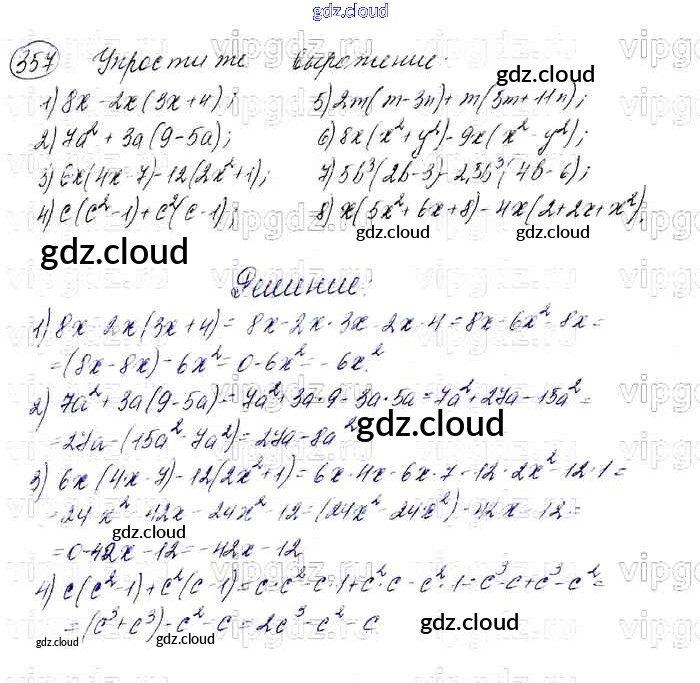 gdz.cloud
357 Упростите выражение:
gdz.cloud
1) 8x - 2x(3x+4); 5) 2m(m-3n)+m(5m+11n);
2) 7a² + 3a(9-5a); 6) 8x(x²+y²)-9x(x²-y²);
3) 6x(4x-7)-12(2x²+1); 7) 5b³(2b-3)-2,5b³(4b-6);
4) c(c²-1)+c²(c-1); 8) x(5x²+6x+8)-4x(2+2x+x²);
gdz.cloud gdz.cloud gdz.cloud
Решение:
1) 8x-2x(3x+4)= 8x-2x·3x-2x·4=8x-6x²-8x=
=(8x-8x)-6x²=0-6x²=-6x².
2) 7a²+3a(9-5a)=7a²+3a·9-3a·5a=7a²+27a-15a²=
=27a-(15a²-7a²)=27a-8a²
gdz.cloud
3) 6x(4x-7)-12(2x²+1)=6x·4x-6x·7-12·2x²-12·1=
=24x²-42x-24x²-12=(24x²-24x²)-42x-12=
gdz.cloud gdz.cloud
=0-42x-12=-42x-12
4) c(c²-1)+c²(c-1)=c·c²-c·1+c²·c-c²·1=c³-c+c³-c²=
=(c³+c³)-c²-c=2c³-c²-c
gdz.cloud gdz.cloud gdz.cloud